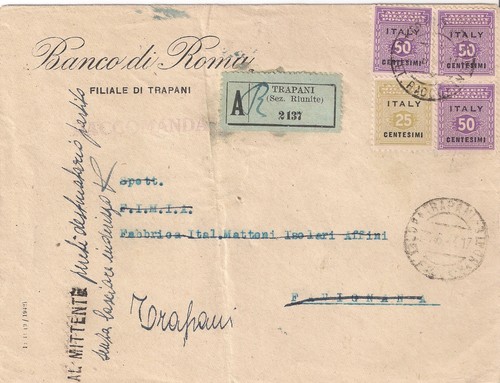 Banco di Roma
FILIALE DI TRAPANI
ITALY
50
CENTESIMI
ITALY
50
CENTESIMI
ITALY
25
CENTESIMI
ITALY
50
CENTESIMI
A
R
TRAPANI
(Sez. Riunite)
2137
RACCOMANDATA
Spett.
F.I.M.I.A.
Fabbrica Ital.Mattoni Isolari Affini
FAVIGNANA
Trapani
AL MITTENTE
perché destinatario partito
senza lasciare indirizzo